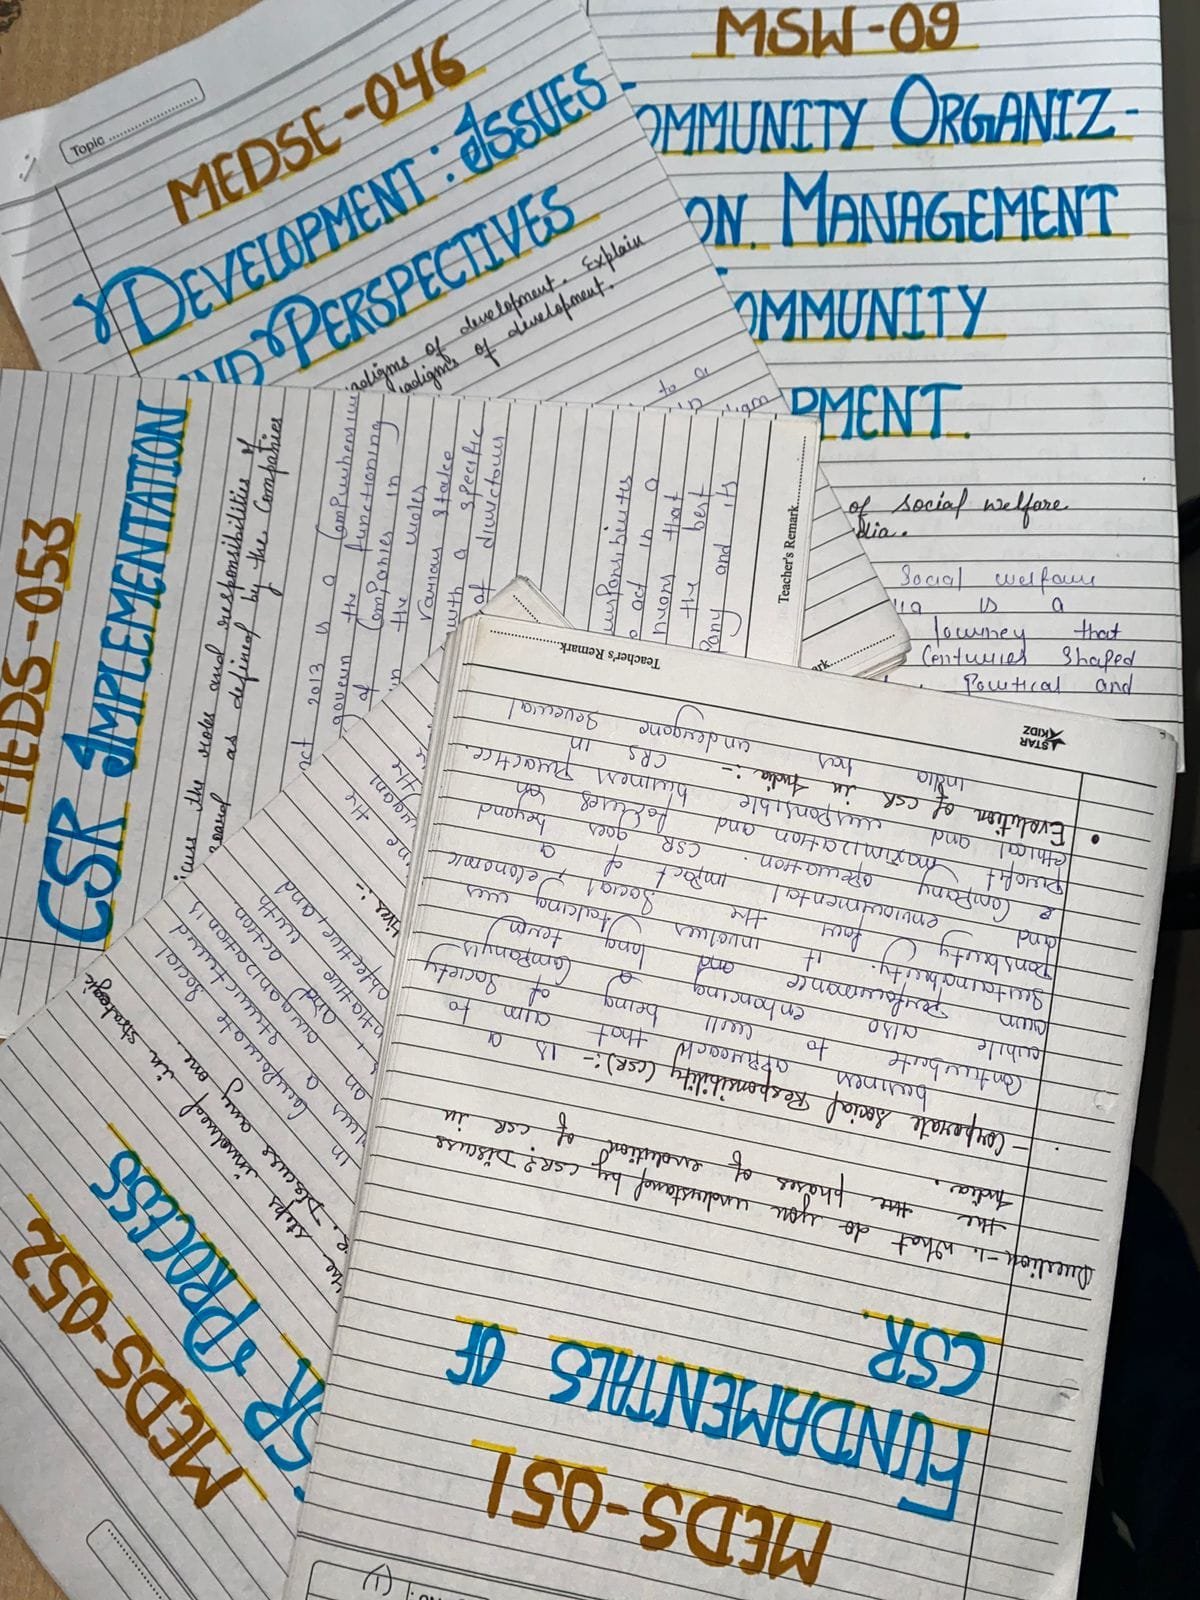 MSW-09
OMMUNITY ORGANIZ-
ON. MANAGEMENT
OMMUNITY
PMENT.
of social welfare
dia.
Social welfare
is a
journey that
Centuries Shaped
Political and
Topic
MEDSE-046
DEVELOPMENT: ISSUES
AND PERSPECTIVES
adigms of development. Explain
adigms of development.
MEDS-053
CSR IMPLEMENTATION
iscuss the roles and responsibilities of
board as defined by the Companies
act 2013 is a Comprehensive
govern the functioning
of Companies in
in the roles
Various Stake
with a specific
of directors
responsibilities
act in a
that
the best
pany and its
Teacher's Remark
MEDS-052
SR PROCESS
the steps involved in strategic
Discuss any one.
a Corporate Social
structured
organization is
and action
with
objective and
tives :-
MEDS-051
FUNDAMENTALS OF
CSR.
Question-1. What do you understand by CSR? Discuss
the the phases of evolution of CSR in
India.
- Corporate Social Responsibility (CSR):- is a
business approach that aim to
Contribute to well being of Society
while also enhancing a Company's
own performance and long term
Sustainability. it involves taking
and four the Social, economic
and environmental impact of a
Company operation. CSR goes beyond
profit maximization and focuses on
ethical and responsible business practice.
• Evolution of CSR in India:- CRS in
India has undergone Several
STAR KIDZ
Teacher's Remark